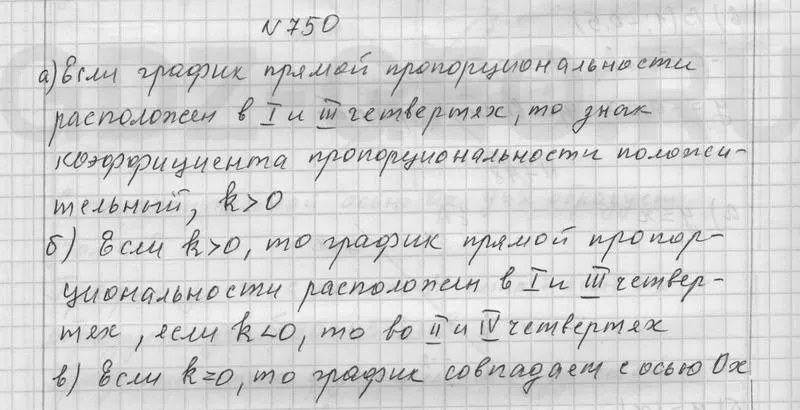 N750
а) Если график прямой пропорциональности
расположен в I и III четвертях, то знак
коэффициента пропорциональности положи-
тельный, k>0
б) Если k>0, то график прямой пропор-
циональности расположен в I и III четвер-
тях, если k<0, то во II и IV четвертях
в) Если k=0, то график совпадает с осью Ох